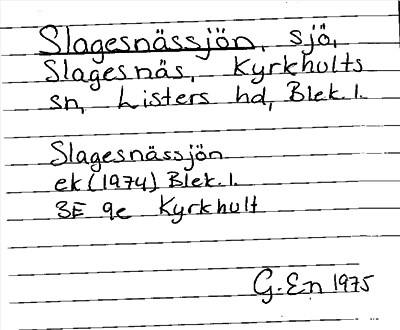 Slagesnässjön, sjö,
Slagesnäs, Kyrkhults
sn, Listers hd, Blek. l.
Slagesnässjön
ek (1974) Blek. l.
3E 9e Kyrkhult
G. En 1975